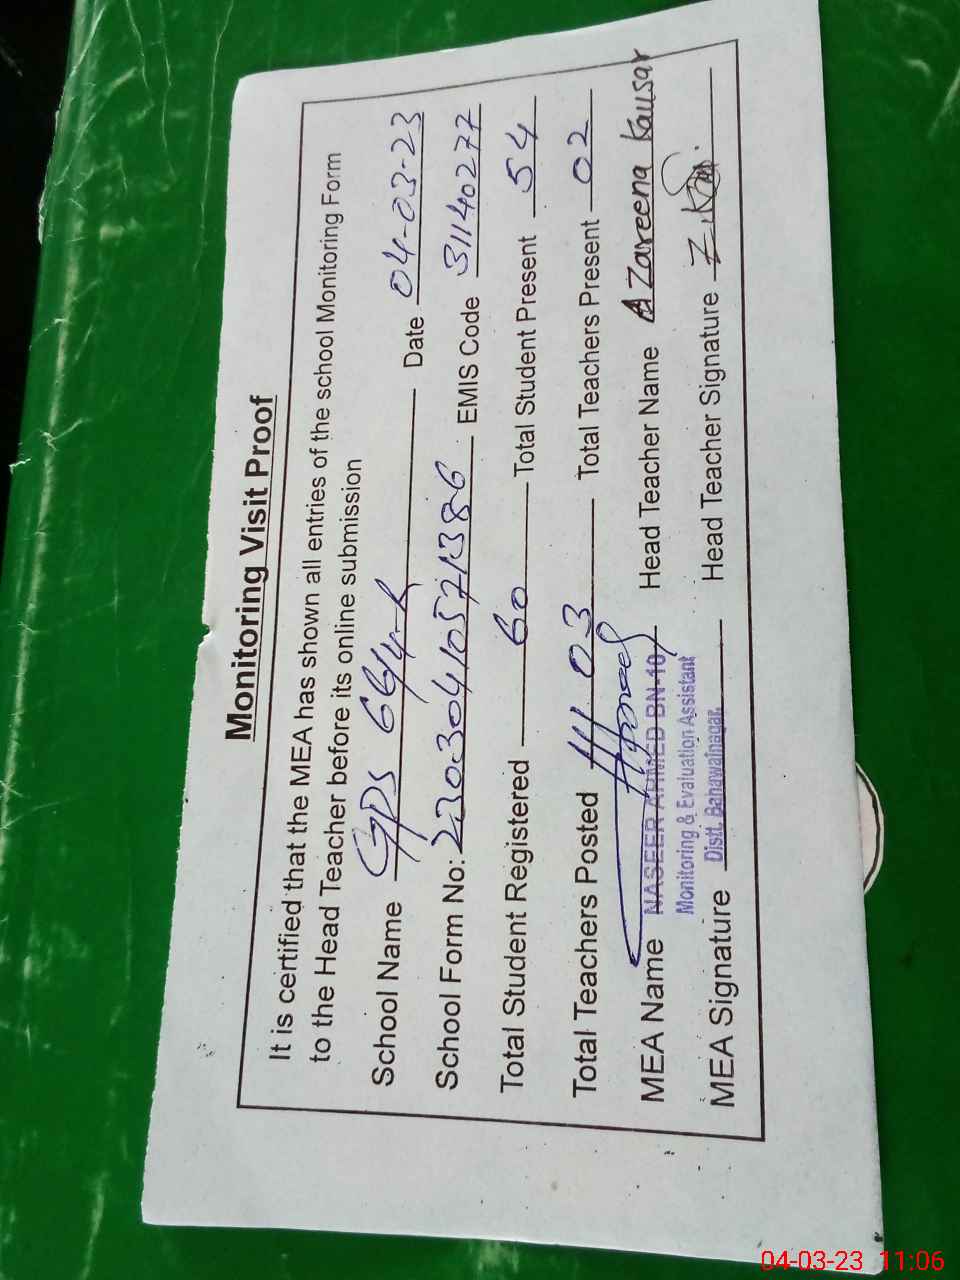 Monitoring Visit Proof
It is certified that the MEA has shown all entries of the school Monitoring Form
to the Head Teacher before its online submission
School Name GPS 6G/4-R Date 04-03-23
School Form No: 230304105721386 EMIS Code 31140277
Total Student Registered 60 Total Student Present 54
Total Teachers Posted 03 Total Teachers Present 02
MEA Name NASEER AHMED BN-10 Head Teacher Name Zareena Kausar
Monitoring & Evaluation Assistant
Distt. Bahawalnagar.
MEA Signature Head Teacher Signature
04-03-23 11:06